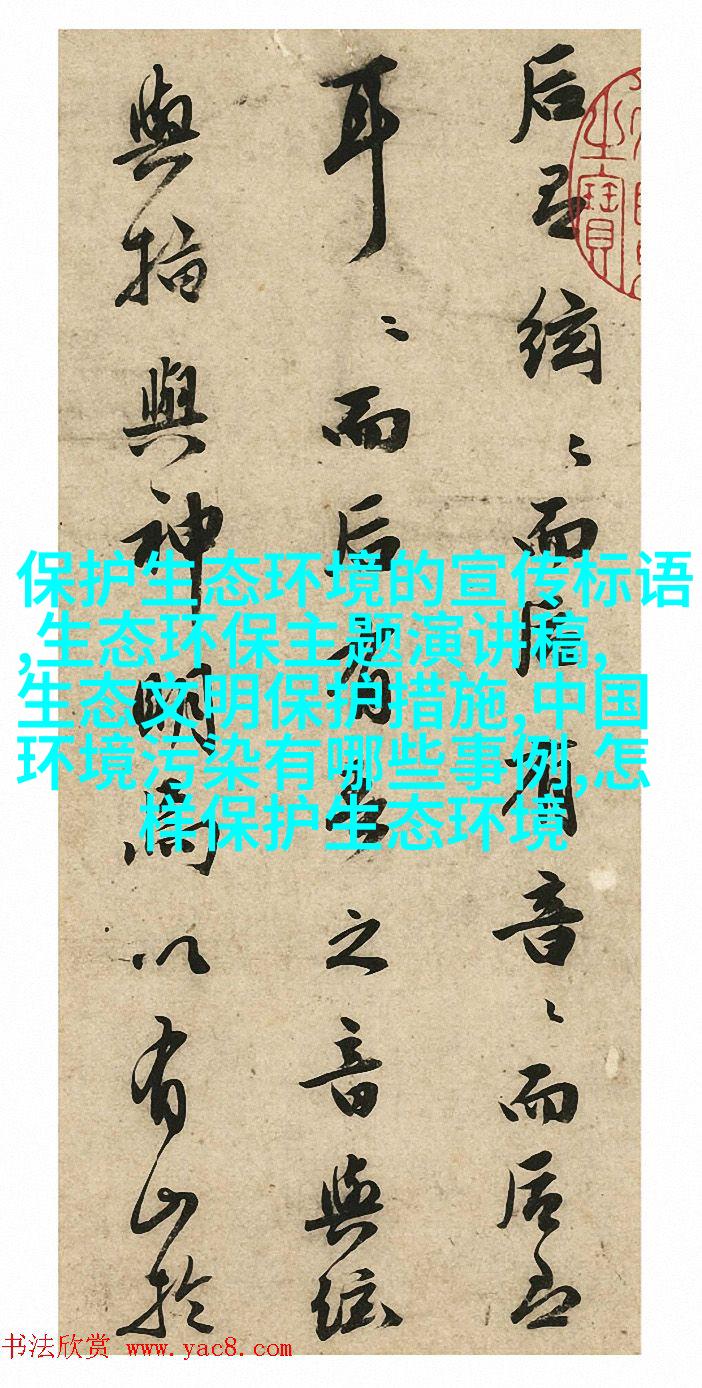 后絃〻而后有音〻而后
耳〻而后有之音與絃
與指與神明焉以有山於
保护生态环境的宣传标语
,生态环保主题演讲稿,
生态文明保护措施,中国
环境污染有哪些事例,怎
样保护生态环境
书法欣赏 www.yac8.com